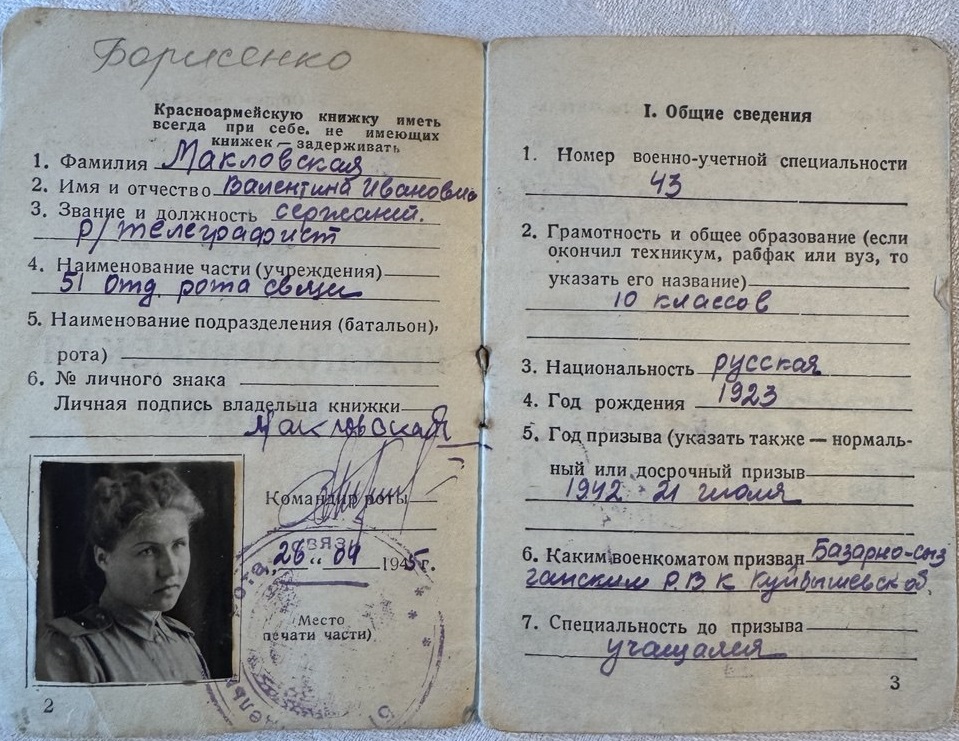 Борисенко
Красноармейскую книжку иметь
всегда при себе. не имеющих
книжек — задерживать
1. Фамилия Макловская
2. Имя и отчество Валентина Ивановна
3. Звание и должность сержант.
р/телеграфист
4. Наименование части (учреждения)
51 отд. рота связи
5. Наименование подразделения (батальон),
рота)
6. № личного знака
Личная подпись владельца книжки
Макловская
Командир роты
28 " 04 1945 г.
Место
печати части)
СВЯЗИ
рота
2
I. Общие сведения
1. Номер военно-учетной специальности
43
2. Грамотность и общее образование (если
окончил техникум, рабфак или вуз, то
указать его название)
10 классов
3. Национальность русская
4. Год рождения 1923
5. Год призыва (указать также — нормаль-
ный или досрочный призыв
1942 21 июля
6. Каким военкоматом призван Базарно-сыз
ганским Р.В К Куйбышевской
7. Специальность до призыва
учащаяся
3